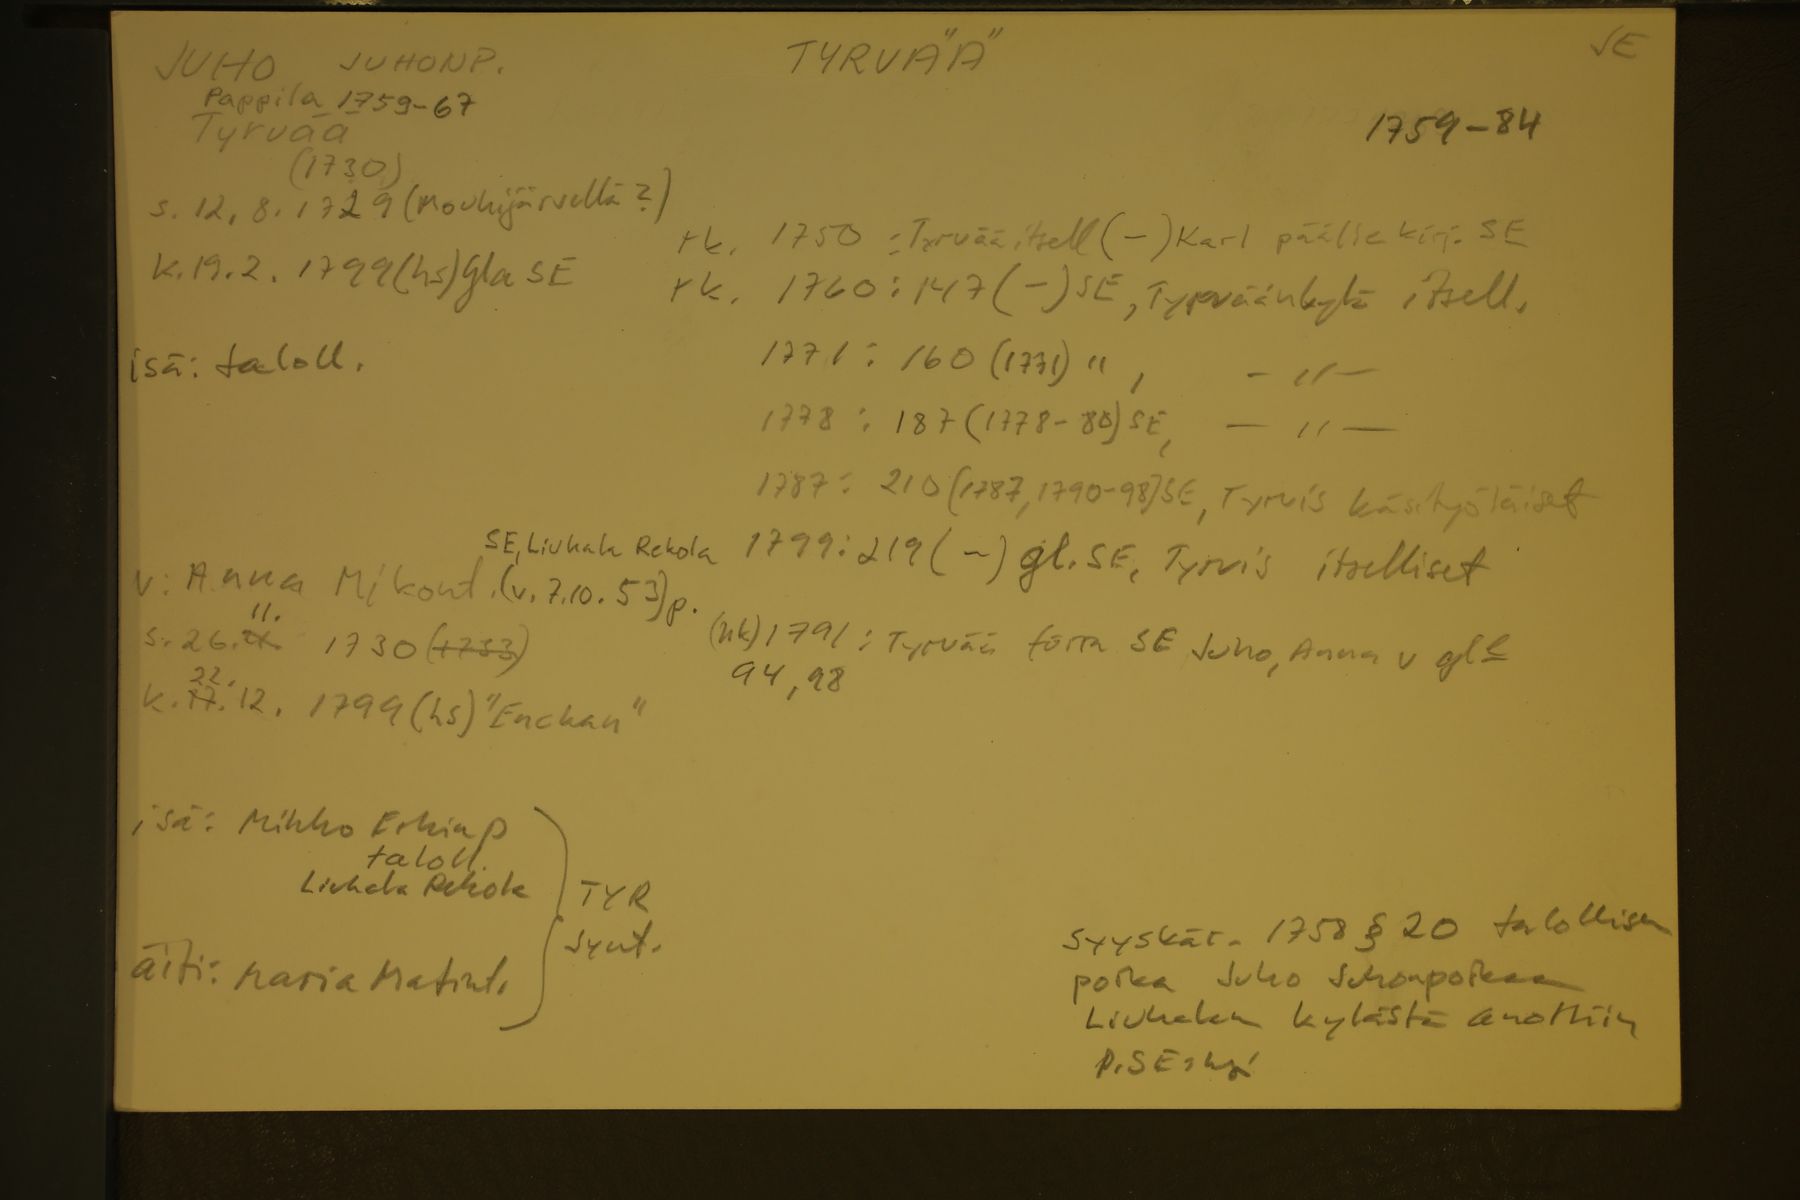 JUHO JUHONP.
TYRVÄÄ
SE
Pappila 1759-67
Tyrvää
1759-84
(1730)
s. 12. 8. 1729 (Mouhijärvellä?)
k. 19. 2. 1799 (hs) gla SE
isä: taloll.
rk. 1750 : Tyrvää itsell (-) Karl päällekirj. SE
rk. 1760 : 147 (-) SE, Tyrväänkylä itsell.
1771 : 160 (1771) " , - " -
1778 : 187 (1778-80) SE, - " -
1787 : 210 (1787, 1790-98) SE, Tyrvis käsityöläiset
SE, Liuhala Rekola 1799 : 219 (-) gl. SE, Tyrvis itselliset
v: Anna Mikont. (v. 7.10. 53) p.
s. 26. 11. 1730 (1733)
k. 17. 22. 12. 1799 (hs) "Enckan"
(rk) 1791 : Tyrvää SE Juho, Anna v gl
94, 98
isä: Mikko Erkinp
taloll.
Liuhala Rekola
äiti: Maria Matint.
TYR
synt.
syyskär. 1758 § 20 talollisen
poika Juho Juhonpoikaa
Liuhalan kylästä anottiin
p. SE:ksi